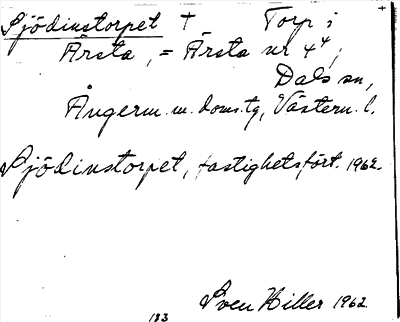 Sjödinstorpet † Torp i
Årsta, = Årsta nr 4⁴,
Dals sn,
Ångerm. m. doms.tg, Västern. l.
Sjödinstorpet, fastighetsfört. 1962.
Sven Hiller 1962
183